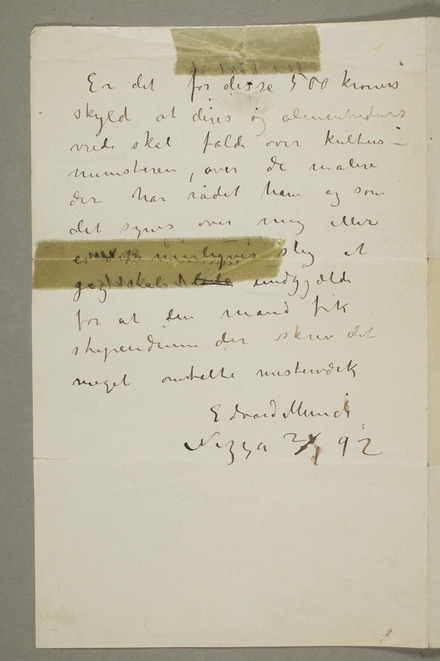 Er det for disse 500 kroners
skyld at deres og
vrede skal falde over kultus-
ministeren, over de malere
der har rådet ham og som
det synes over mig eller
er det muligvis slig at
jeg skal lide undgjælde
for at den mand fik
stipendium der skrev det
meget omtalte mesterværk
Edvard Munch
Nizza 92